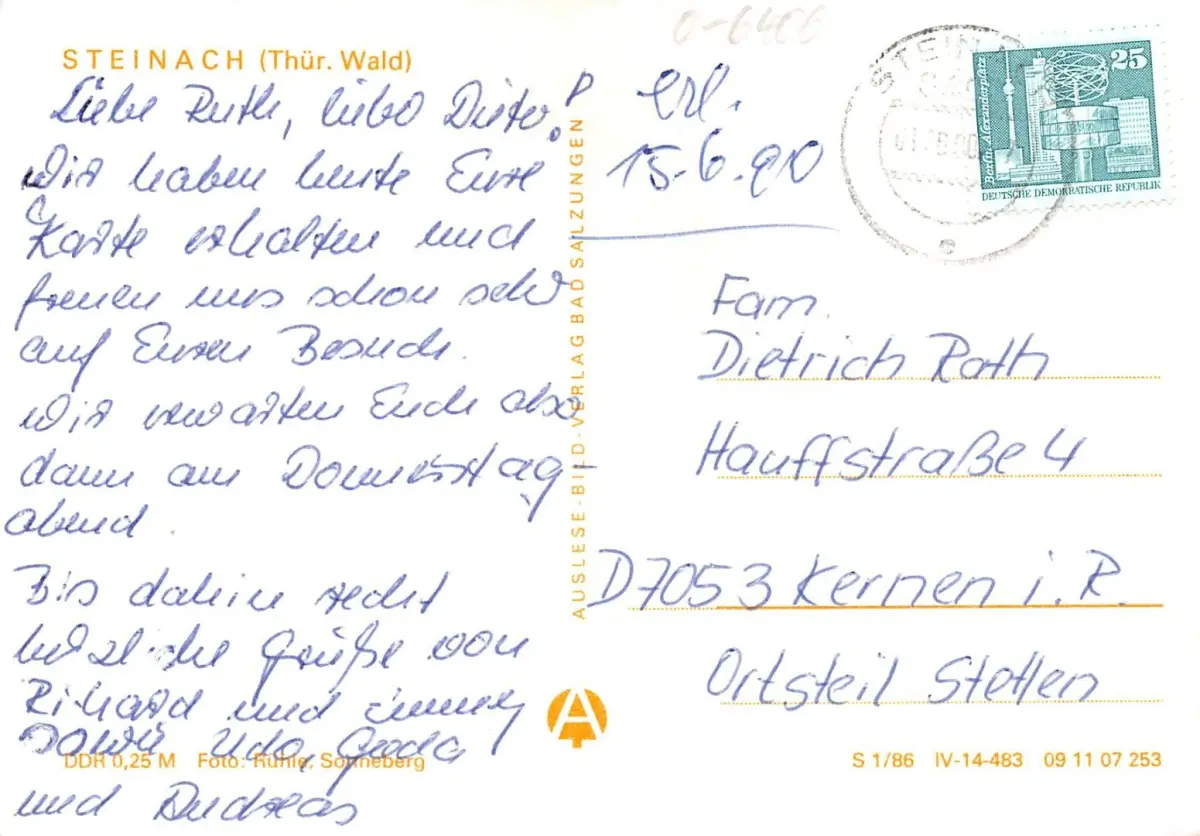 STEINACH (Thür. Wald)
Liebe Ruth, liebe Dieter!
Wir haben heute Eure
Karte erhalten und
freuen uns schon sehr
auf Euren Besuch.
Wir erwarten Euch also
dann am Donnerstag
abend.
Bis dahin recht
herzliche Grüße von
Richard und
sowie Udo, Gerda
und Andreas
DDR 0,25 M Foto: Rühle, Sonneberg
AUSLESE-BILD-VERLAG BAD SALZUNGEN
A
0-6406
erl.
15.6.90
STEIN
25
Berlin, Alexanderplatz
DEUTSCHE DEMOKRATISCHE REPUBLIK
e
Fam.
Dietrich Roth
Hauffstraße 4
D7053 Kernen i. R.
Ortsteil Stetten
S 1/86 IV-14-483 09 11 07 253